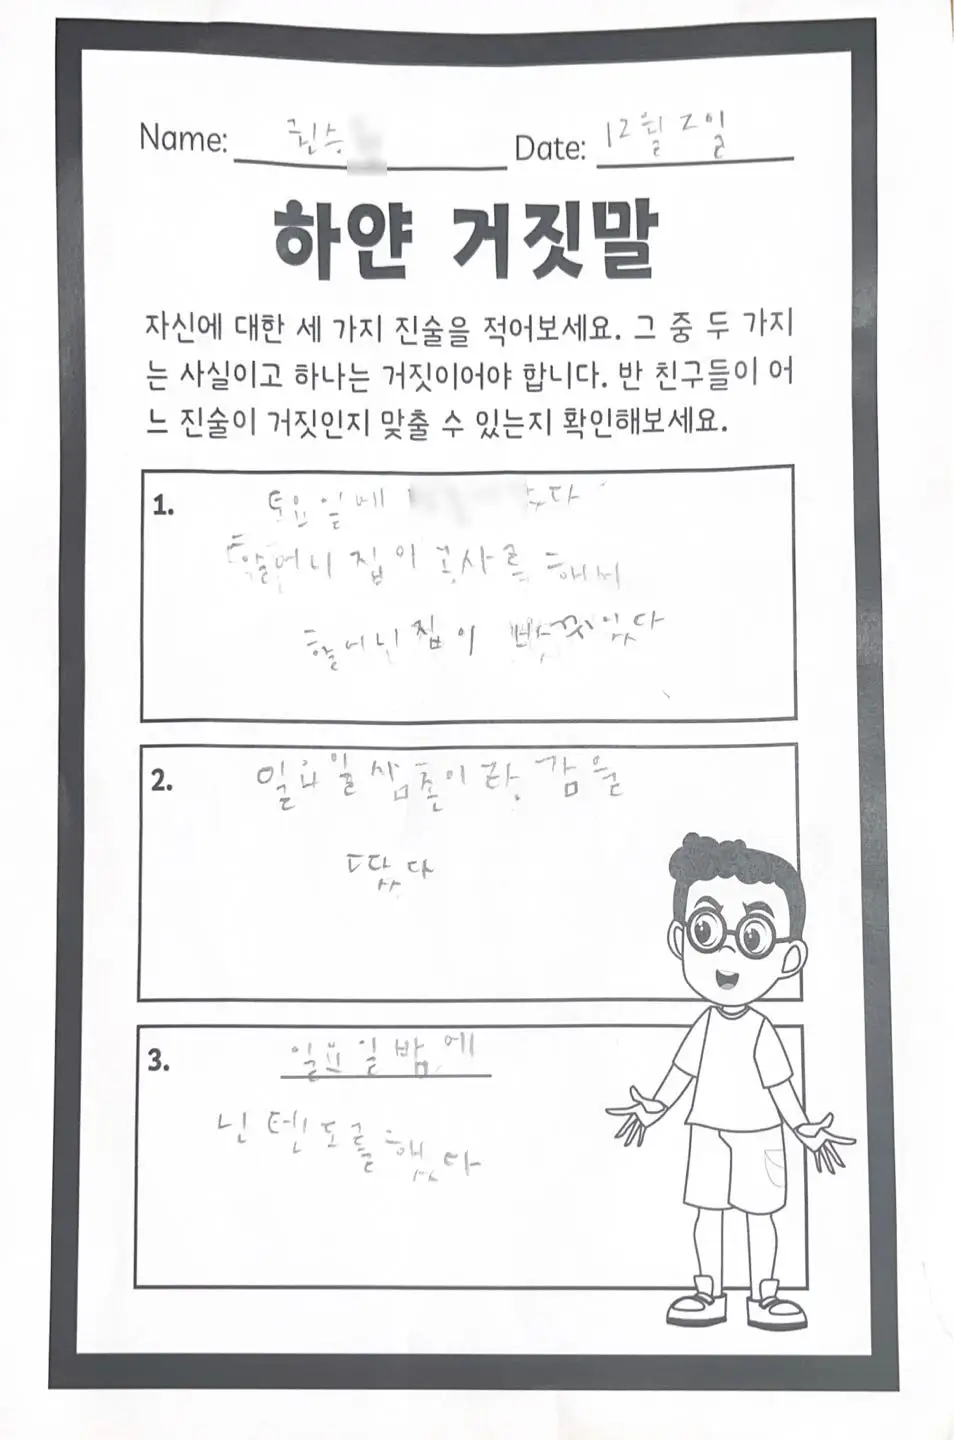 Name: 권승
Date: 12월 2일
하얀 거짓말
자신에 대한 세 가지 진술을 적어보세요. 그 중 두 가지
는 사실이고 하나는 거짓이어야 합니다. 반 친구들이 어
느 진술이 거짓인지 맞출 수 있는지 확인해보세요.
1. 토요일에
할머니 집이 공사를 해서
할머니 집이 바뀌었다
2. 일요일 삼촌이랑 감을
땄다
3. 일요일 밤에
닌텐도를 했다